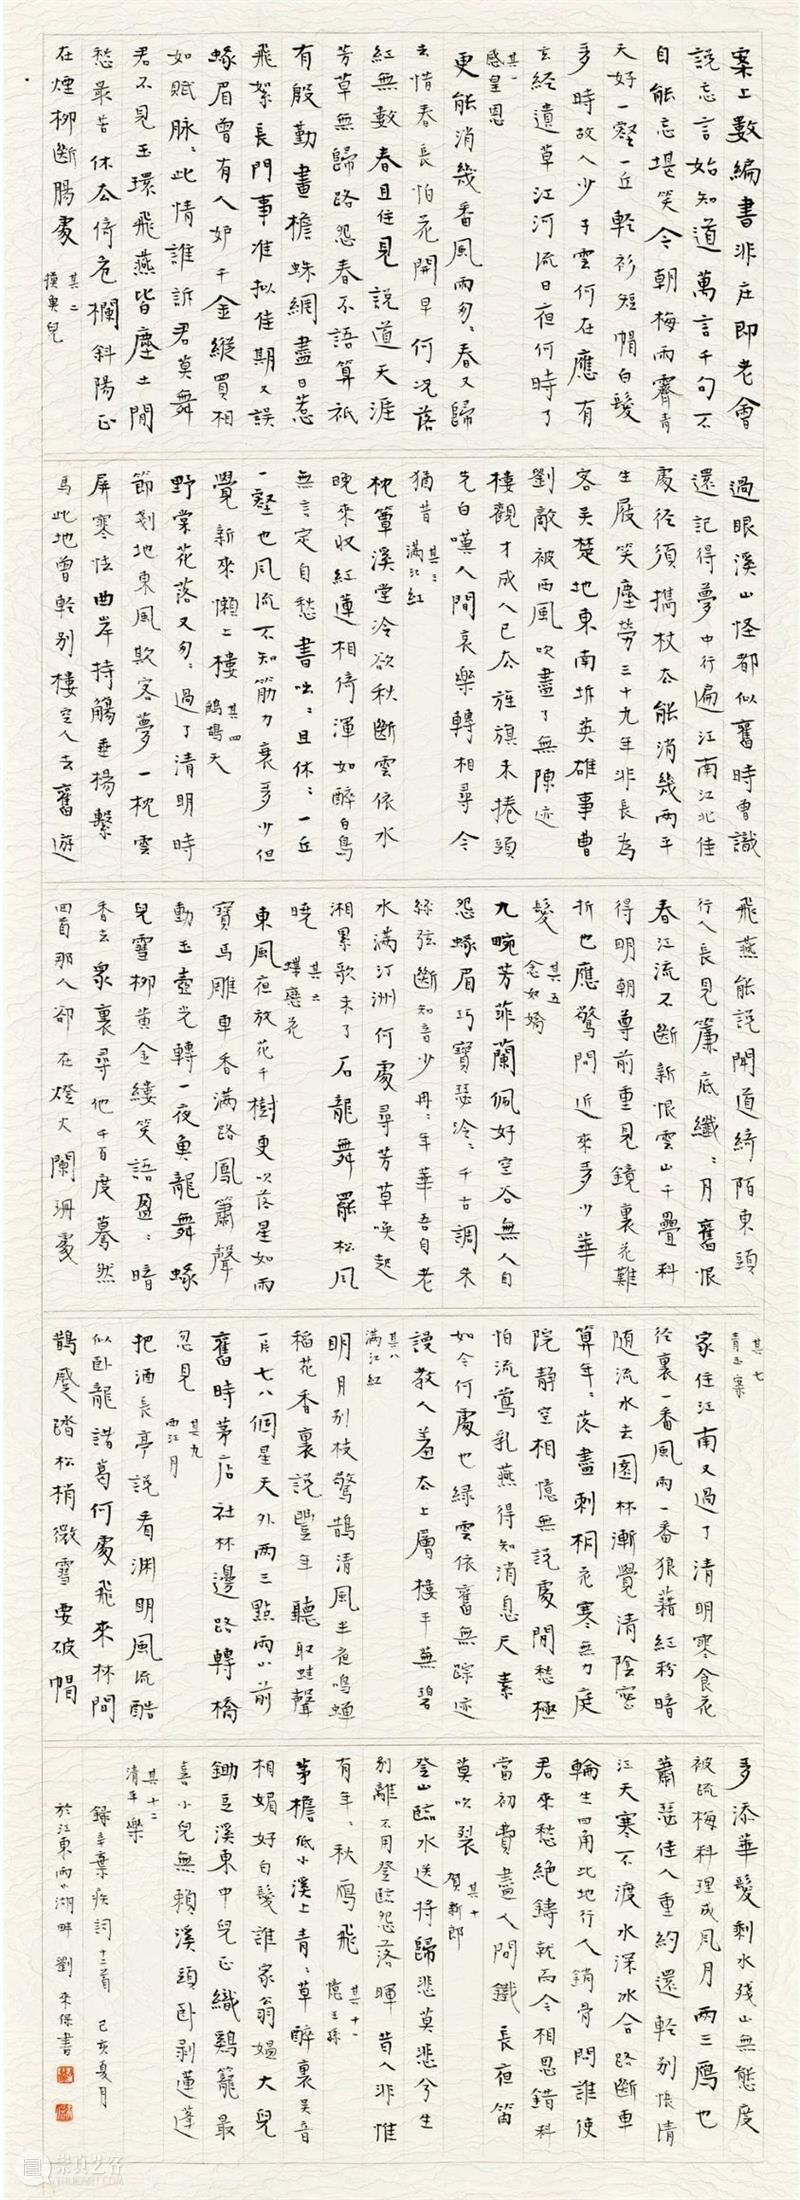 案上數編書非庄即老會
說忘言始知道萬言千句不
自能忘堪笑今朝梅雨霽青
天好一壑一丘輕衫短帽白髮
多時故人少子雲何在應有
玄經遺草江河流日夜何時了
其一
感皇恩
更能消幾番風雨匆〻春又歸
去惜春長怕花開早何況落
紅無數春且住見說道天涯
芳草無歸路怨春不語算祇
有殷勤畫檐蛛網盡日惹
飛絮長門事准擬佳期又誤
蛾眉曾有人妒千金縱買相
如賦脉〻此情誰訴君莫舞
君不見玉環飛燕皆塵土閒
愁最苦休去倚危欄斜陽正
在煙柳斷腸處
其二
摸魚兒
過眼溪山怪都似舊時曾識
還記得夢中行遍江南江北佳
處徑須攜杖去能消幾兩平
生屐笑塵勞三十九年非長為
客吳楚地東南坼英雄事曹
劉敵被西風吹盡了無陳迹
樓觀才成人已去旌旗未捲頭
先白嘆人間哀樂轉相尋今
猶昔
其三
滿江紅
枕簟溪堂冷欲秋斷雲依水
晚來收紅蓮相倚渾如醉白鳥
無言定自愁書咄〻且休〻一丘
一壑也風流不知筋力衰多少但
覺新來懶上樓
其四
鷓鴣天
野棠花落又匆〻過了清明時
節剗地東風欺客夢一枕雲
屏寒怯曲岸持觴垂楊繫
馬此地曾輕別樓空人去舊遊
飛燕能說聞道綺陌東頭
行人長見簾底纖〻月舊恨
春江流不斷新恨雲山千疊料
得明朝尊前重見鏡裏花難
折也應驚問近來多少華
髮
其五
念奴嬌
九畹芳菲蘭佩好空谷無人自
怨蛾眉巧寶瑟泠〻千古調朱
絲弦斷知音少冉〻年華吾自老
水滿汀洲何處尋芳草喚起
湘累歌未了石龍舞罷松風
曉
其六
蝶戀花
東風夜放花千樹更吹落星如雨
寶馬雕車香滿路鳳簫聲
動玉壺光轉一夜魚龍舞蛾
兒雪柳黃金縷笑語盈〻暗
香去衆裏尋他千百度驀然
回首那人卻在燈火闌珊處
其七
青玉案
家住江南又過了清明寒食花
徑裏一番風雨一番狼藉紅粉暗
隨流水去園林漸覺清陰密
算年〻落盡刺桐花寒無力庭
院靜空相憶無說處閒愁極
怕流鶯乳燕得知消息尺素
如今何處也綠雲依舊無踪迹
謾教人羞去上層樓平蕪碧
其八
滿江紅
明月別枝驚鵲清風半夜鳴蟬
稻花香裏說豐年聽取蛙聲
一片七八個星天外兩三點雨山前
舊時茅店社林邊路轉橋
忽見
其九
西江月
把酒長亭說看淵明風流酷
似卧龍諸葛何處飛來林間
鵲蹙踏松梢微雪要破帽
多添華髮剩水殘山無態度
被疏梅料理成風月兩三雁也
蕭瑟佳人重約還輕別悵清
江天寒不渡水深冰合路斷車
輪生四角此地行人銷骨問誰使
君來愁絕鑄就而今相思錯料
當初費盡人間鐵長夜笛
莫吹裂
其十
賀新郎
登山臨水送將歸悲莫悲兮生
別離不用登臨怨落暉昔人非惟
有年〻秋雁飛
其十一
憶王孫
茅檐低小溪上青〻草醉裏吳音
相媚好白髮誰家翁媼大兒
鋤豆溪東中兒正織鷄籠最
喜小兒無賴溪頭卧剥蓮蓬
其十二
清平樂
錄辛棄疾詞十二首 己亥夏月
於江東雨山湖畔劉來保書
崇真艺客